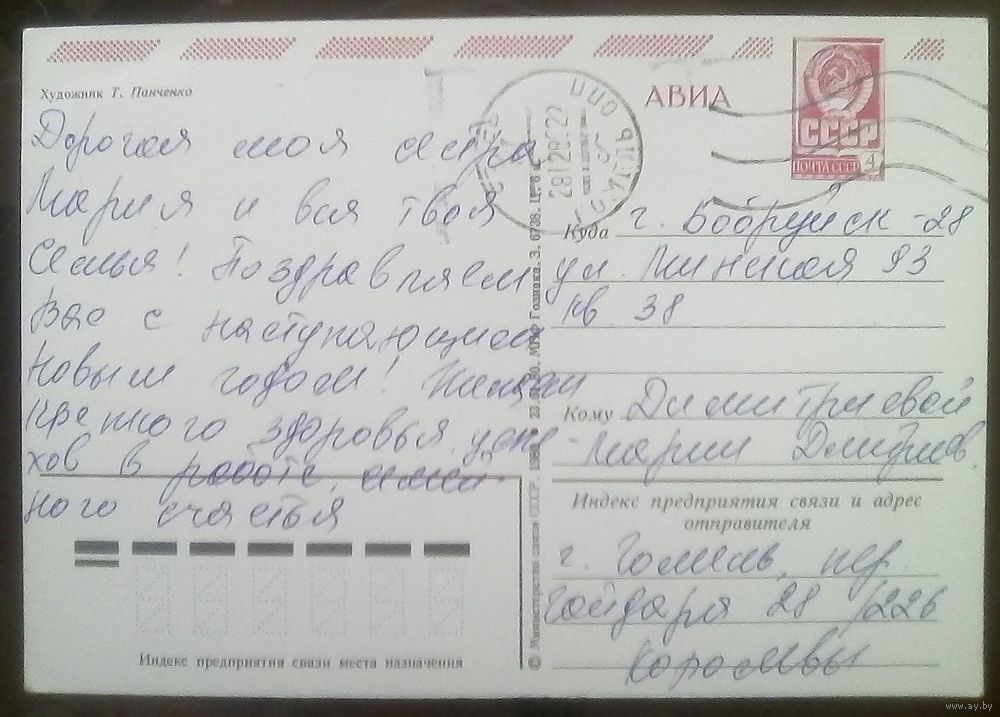 Художник Т. Панченко
АВИА
СССР
ПОЧТА СССР 4
Дорогая моя сестра
Мария и вся твоя
Семья! Поздравляем
Вас с наступающим
Новым годом! Желаем
крепкого здоровья, успе-
хов в работе, семей-
ного счастья
Куда г. Бобруйск-28
ул. Минская 93
кв. 38
Кому Димитриевой
Марии Дмитриев.
Индекс предприятия связи и адрес
отправителя
г. Гомель, пер.
Гайдара 28 /226
Королевы
Индекс предприятия связи места назначения
© Министерство связи СССР. 198
Гознака. З. 6738. Ц. 6 к.
www.ay.by